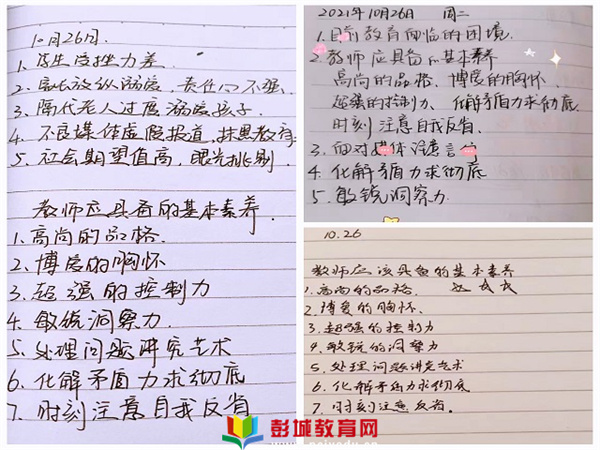 10月26日.
1. 学生受挫力差.
2. 家长放纵溺爱，责任心不强.
3. 隔代老人过度溺爱孩子
4. 不良媒体虚假报道，抹黑教育
5. 社会期望值高，眼光挑剔
教师应具备的基本素养.
1. 高尚的品格.
2. 博爱的胸怀
3. 超强的控制力
4. 敏锐洞察力
5. 处理问题讲究艺术
6. 化解矛盾力求彻底
7. 时刻注意自我反省
2021年10月26日 周二
1. 目前教育面临的困境.
2. 教师应具备的基本素养
高尚的品格、博爱的胸怀
超强的控制力、化解矛盾力求彻底
时刻注意自我反省、
3. 面对媒体注意言
4. 化解矛盾力求彻底
5. 敏锐洞察力.
10.26
教师应该具备的基本素养
1. 高尚的品格.
2. 博爱的胸怀
3. 超强的控制力
4. 敏锐的洞察力
5. 处理问题讲究艺术
6. 化解矛盾力求彻底
7. 时刻注意反省.
彭城教育网